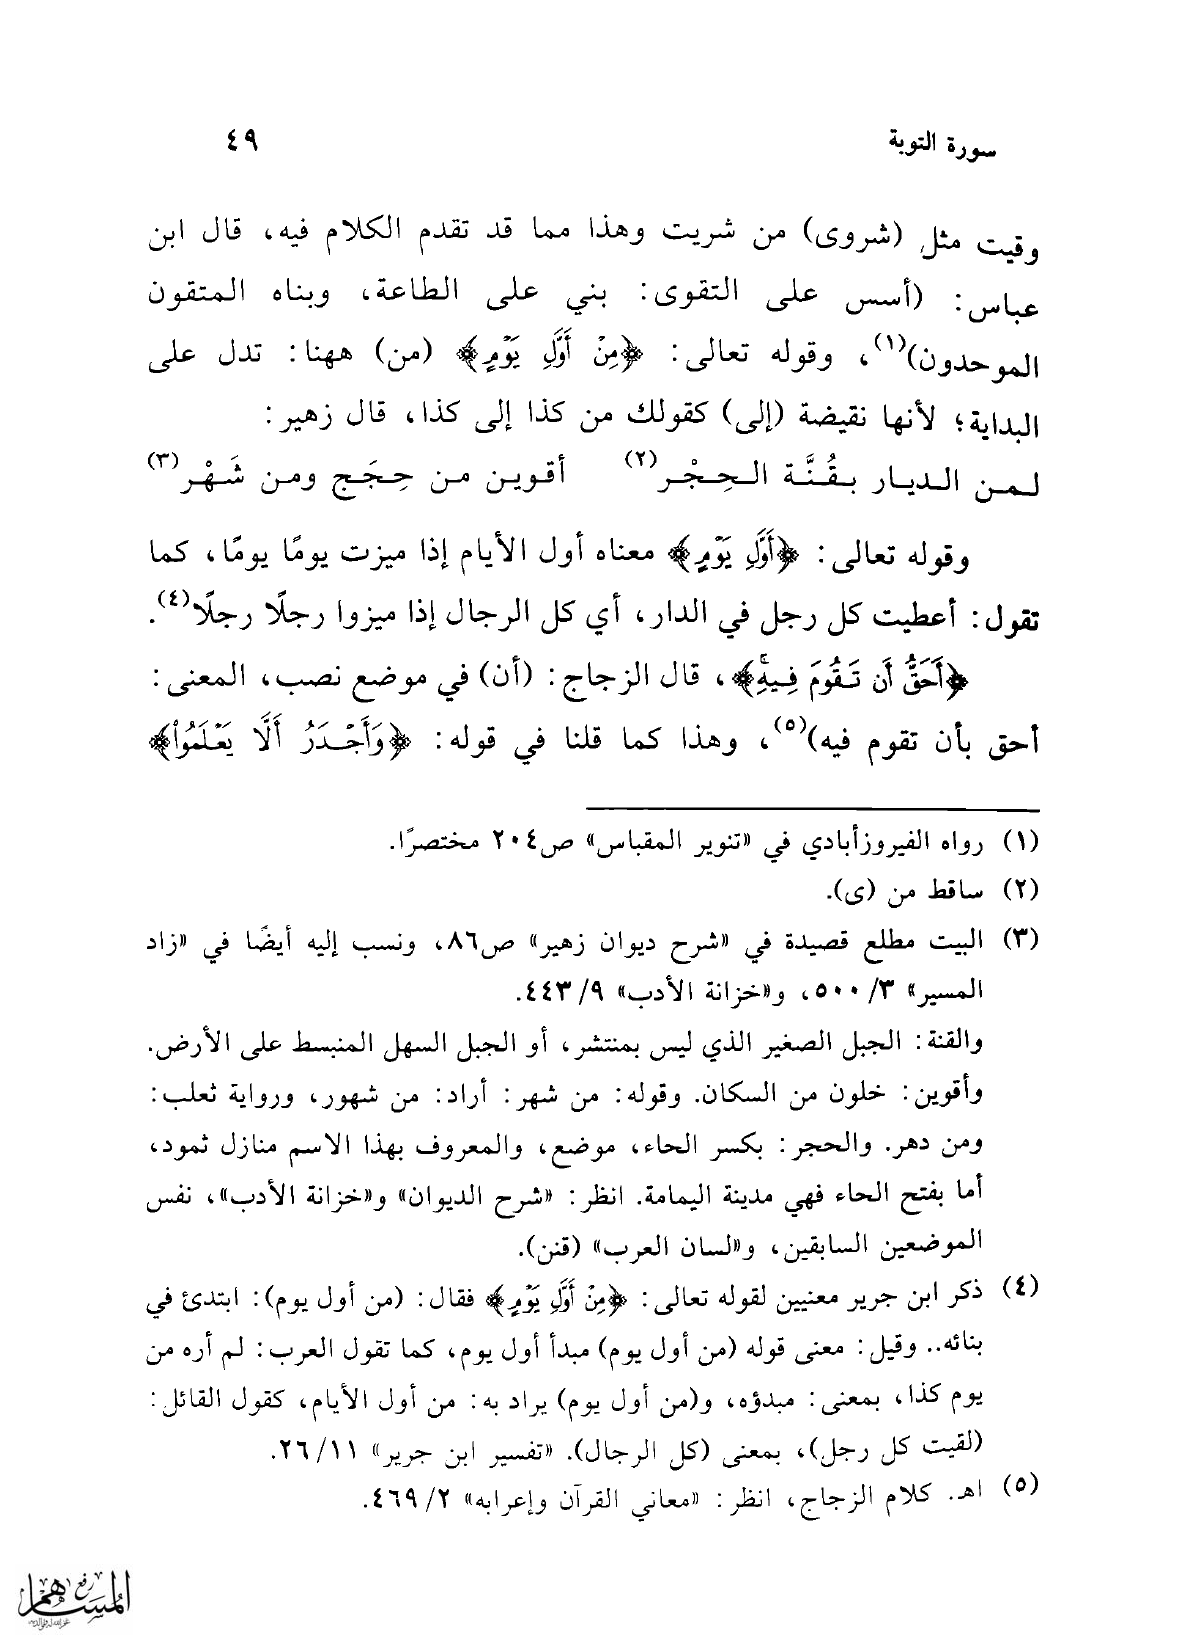 سورة التوبة ٤٩
وقيت مثل (شروى) من شريت وهذا مما قد تقدم الكلام فيه، قال ابن
عباس: (أسس على التقوى: بني على الطاعة، وبناه المتقون
الموحدون)(١)، وقوله تعالى: ﴿مِنْ أَوَّلِ يَوْمٍ﴾ (من) ههنا: تدل على
البداية؛ لأنها نقيضة (إلى) كقولك من كذا إلى كذا، قال زهير:
لـمـن الـديـار بـقُـنَّـة الـحِـجْـر(٢) أقـويـن مـن حِـجَـج ومـن شَـهْـر(٣)
وقوله تعالى: ﴿أَوَّلِ يَوْمٍ﴾ معناه أول الأيام إذا ميزت يومًا يومًا، كما
تقول: أعطيت كل رجل في الدار، أي كل الرجال إذا ميزوا رجلًا رجلًا(٤).
﴿أَحَقُّ أَن تَقُومَ فِيهِۚ﴾، قال الزجاج: (أن) في موضع نصب، المعنى:
أحق بأن تقوم فيه)(٥)، وهذا كما قلنا في قوله: ﴿وَأَجْدَرُ أَلَّا يَعْلَمُواْ﴾
(١) رواه الفيروزأبادي في «تنوير المقباس» ص٢٠٤ مختصرًا.
(٢) ساقط من (ى).
(٣) البيت مطلع قصيدة في «شرح ديوان زهير» ص٨٦، ونسب إليه أيضًا في «زاد
المسير» ٣/ ٥٠٠، و«خزانة الأدب» ٩/ ٤٤٣.
والقنة: الجبل الصغير الذي ليس بمنتشر، أو الجبل السهل المنبسط على الأرض.
وأقوين: خلون من السكان. وقوله: من شهر: أراد: من شهور، ورواية ثعلب:
ومن دهر. والحجر: بكسر الحاء، موضع، والمعروف بهذا الاسم منازل ثمود،
أما بفتح الحاء فهي مدينة اليمامة. انظر: «شرح الديوان» و«خزانة الأدب»، نفس
الموضعين السابقين، و«لسان العرب» (قنن).
(٤) ذكر ابن جرير معنيين لقوله تعالى: ﴿مِنْ أَوَّلِ يَوْمٍ﴾ فقال: (من أول يوم): ابتدئ في
بنائه.. وقيل: معنى قوله (من أول يوم) مبدأ أول يوم، كما تقول العرب: لم أره من
يوم كذا، بمعنى: مبدؤه، و(من أول يوم) يراد به: من أول الأيام، كقول القائل:
(لقيت كل رجل)، بمعنى (كل الرجال). «تفسير ابن جرير» ١١/ ٢٦.
(٥) اهـ. كلام الزجاج، انظر: «معاني القرآن وإعرابه» ٢/ ٤٦٩.
رفع
المساهم